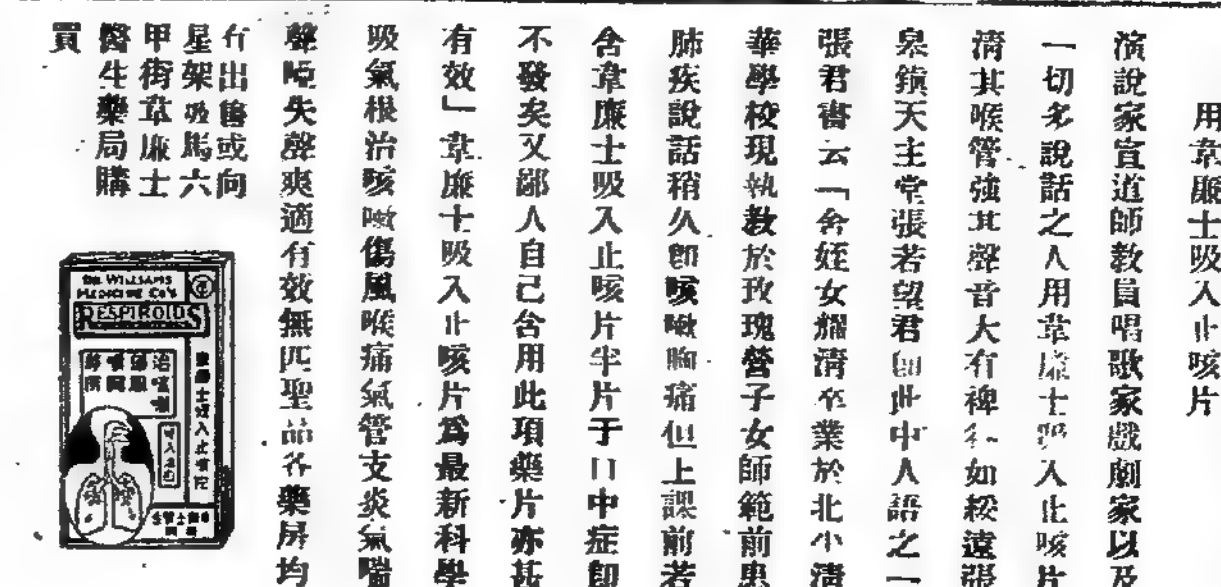 用韋廉士吸入止咳片
演說家宣道師教員唱歌家戲劇家以及
一切多說話之人用韋廉士吸入止咳片
清其喉管強其聲音大有裨益如綏遠張
皋鎮天主堂張若望君即此中人語之一
張君書云「舍姪女耀清卒業於北小清
華學校現執教於玫瑰營子女師範前患
肺疾說話稍久卽咳嗽胸痛但上課前若
含韋廉士吸入止咳片半片于口中症卽
不發矣又鄙人自己含用此項藥片亦甚
有效」韋廉士吸入止咳片爲最新科學
吸氣根治咳嗽傷風喉痛氣管支炎氣喘
聲啞失聲爽適有效無匹聖品各藥房均
有出售或向
星架坡馬六
甲街韋廉士
醫生藥局購
買
DR. WILLIAMS
MEDICINE CO'S
RESPIROIDS
韋廉士吸入止咳片
治咳嗽
傷風
喉痛